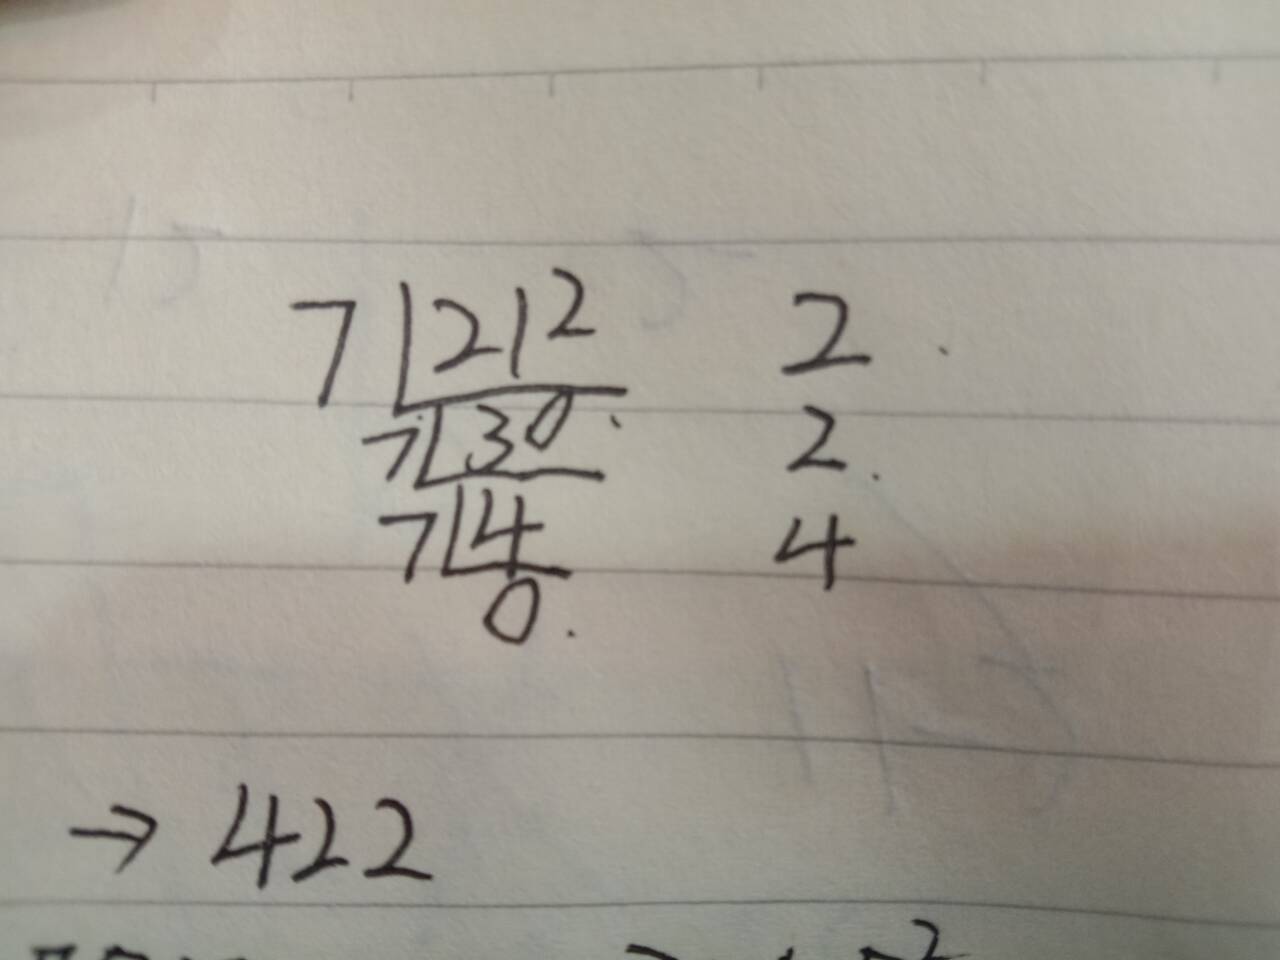 7 212 2
7 30 2
7 4 4
0
→ 422